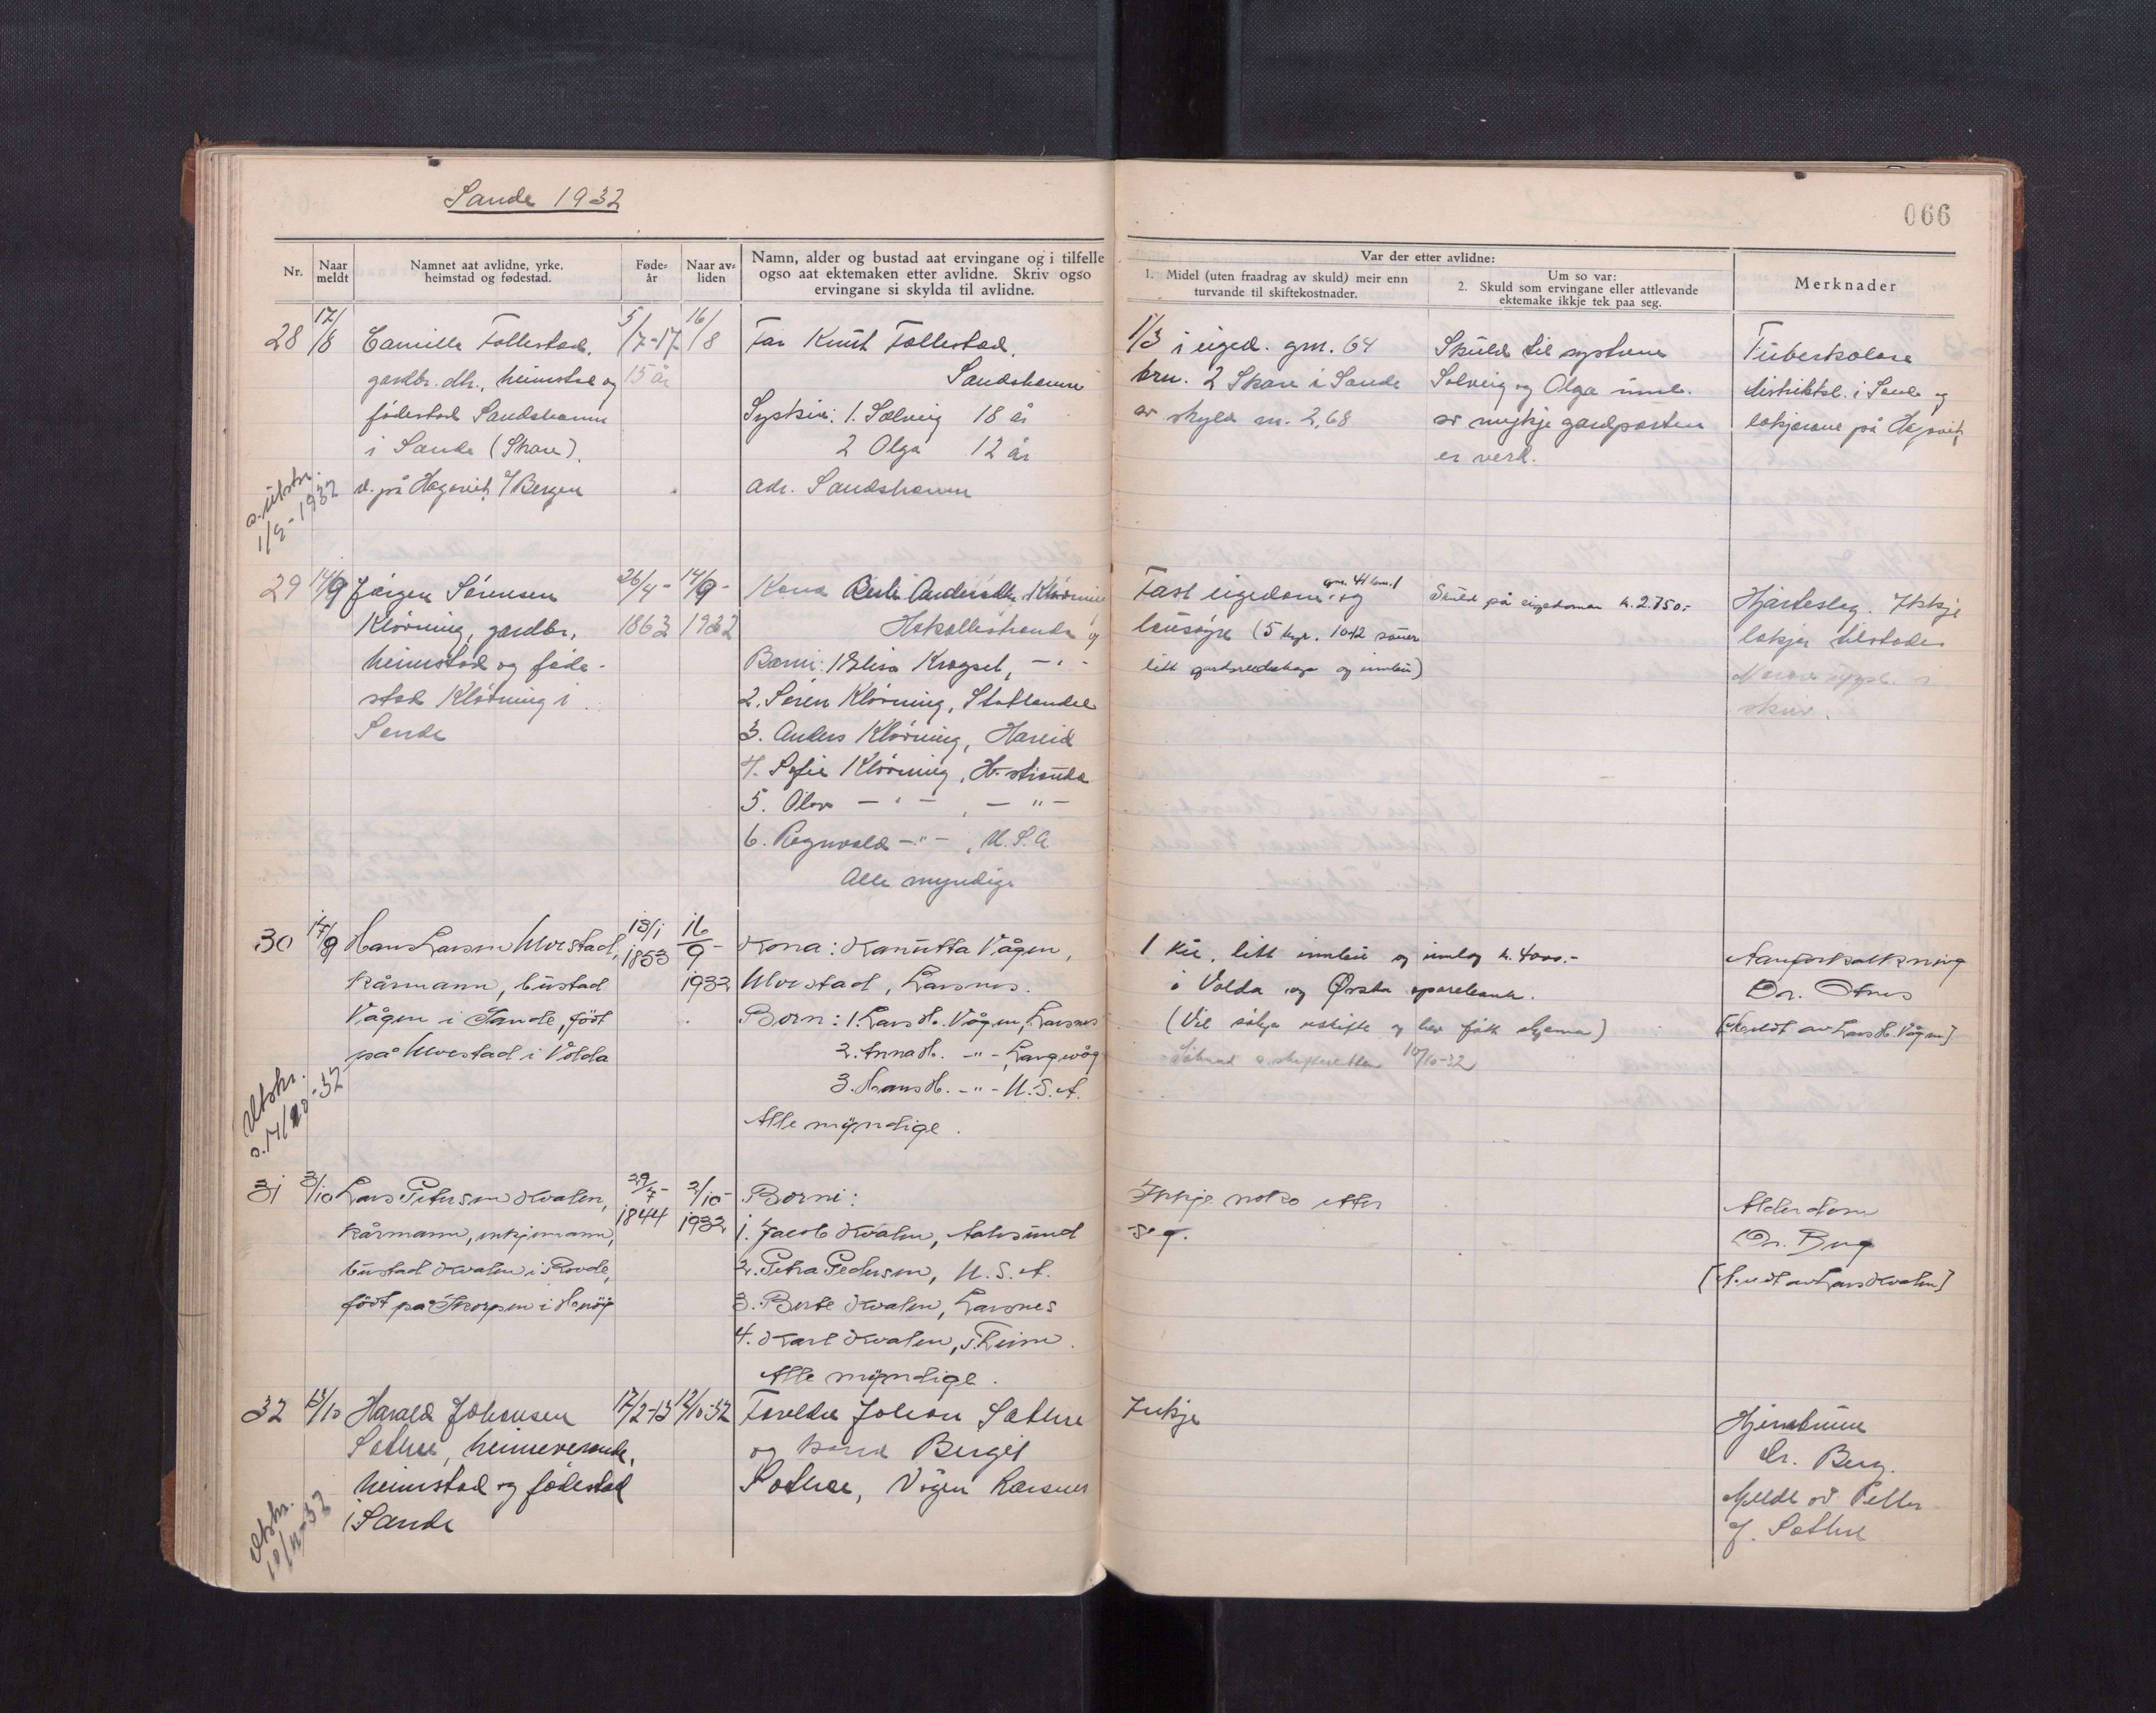 Sande 1932
066
Nr.
Naar meldt
Namnet aat avlidne, yrke, heimstad og fødestad.
Føde-år
Naar av-liden
Namn, alder og bustad aat ervingane og i tilfelle
ogso aat ektemaken etter avlidne. Skriv ogso
ervingane si skylda til avlidne.
Var der etter avlidne:
1. Midel (uten fraadrag av skuld) meir enn
turvande til skiftekostnader.
Um so var:
2. Skuld som ervingane eller attlevande
ektemake ikkje tek paa seg.
Merknader
28 17/8 Camilla Follestad,
gardbr. dtr., heimstad og
fødestad Sandshamn
i Sande (Skare).
d. på Hagavik i/ Bergen
a. utskr.
1/9-1932
5/7-17
15 år
16/8
Far Knut Follestad,
Sandshamn
Syskin: 1. Solveig 18 år
2 Olga 12 år
adr. Sandshamn
1/3 i eiged. gnr. 64
brn. 2 Skare i Sande
av skyld m. 2,68
Skuld til systrene
Solveig og Olga
av mykje gardparten
er verd.
Tuberkolose
distriktsl. i Sande og
lækjarane på Hagavik
29 14/9 Jørgen Sørensen
Kløvning, gardbr.,
heimstad og føde-
stad Kløvning i
Sande
26/4-
1863
14/9-
1932
Kona Berte Andersdtr. Kløvning
Hakallestranda og
Borni: 1 Elisa Krogset, -"-
2. Søren Kløvning, Statlandet
3. Anders Kløvning, Hareid
4. Sofie Kløvning, H.stranda
5. Olav -"-, -"-
6. Ragnvald -"-, U.S.A
Alle myndige
Fast eigedom gnr. 41 bnr. 1 og
lausøyre (5 kyr. 10-12 sauer
litt gardsreidskap og innbu)
Skuld på eigedomen kr. 2.750.-
Hjarteslag. Ikkje
lækjar tilstades
30 17/9 Hans Larsen Ulvestad,
kårmann, bustad
Vågen i Sande, født
på Ulvestad i Volda
Utskr.
a. 14/10-32
13/1
1853
16/9-
1932
Kona: Kanutta Vågen,
Ulvestad, Larsnes.
Born: 1. Lars H. Vågen, Larsnes
2. Anna H. -"- Langevåg
3. Hans H. -"- U.S.A.
Alle myndige.
1 ku, litt innbu og innlog kr. 4000.-
i Volda og Ørsta sparebank.
(Vil søkja uskifte og hev fått skjema)
10/10-32
Aareforkalkning
Dr.
[Meldt av Lars H. Vågen]
31 3/10 Lars Petersen Kvalen,
kårmann, enkjemann,
bustad Kvalen i Rovde,
født på Skorpen i Herøy
29/7-
1844
2/10-
1932
Borni:
1. Jacob Kvalen, Aalesund
2. Petra Pedersen, U.S.A.
3. Berte Kvalen, Larsnes
4. Karl Kvalen,
Alle myndige.
Ikkje noko etter
seg.
Alderdom
Dr. Berg
[Meldt av Lars Kvalen]
32 13/10 Harald Johansen
Sætre, heimeverande,
heimstad og fødestad
i Sande
Utskr.
17/2-13
12/10-32
Foreldre Johan Sætre
og kona Bergit
Sætre, Vågen Larsnes
Inkje
Dr. Berg.
Meldt av Petter
J. Sætre